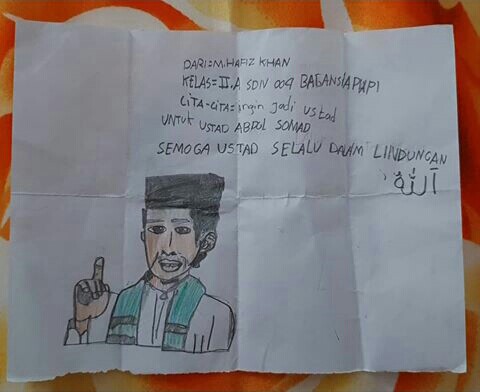 DARI=M.HAFIZ KHAN
KELAS=II.A SDN 009 BAGANSIAPIAPI
CITA-CITA=ingin jadi ustad
UNTUK USTAD ABDOL SOMAD
SEMOGA USTAD SELALU DALAM LINDUNGAN
الله